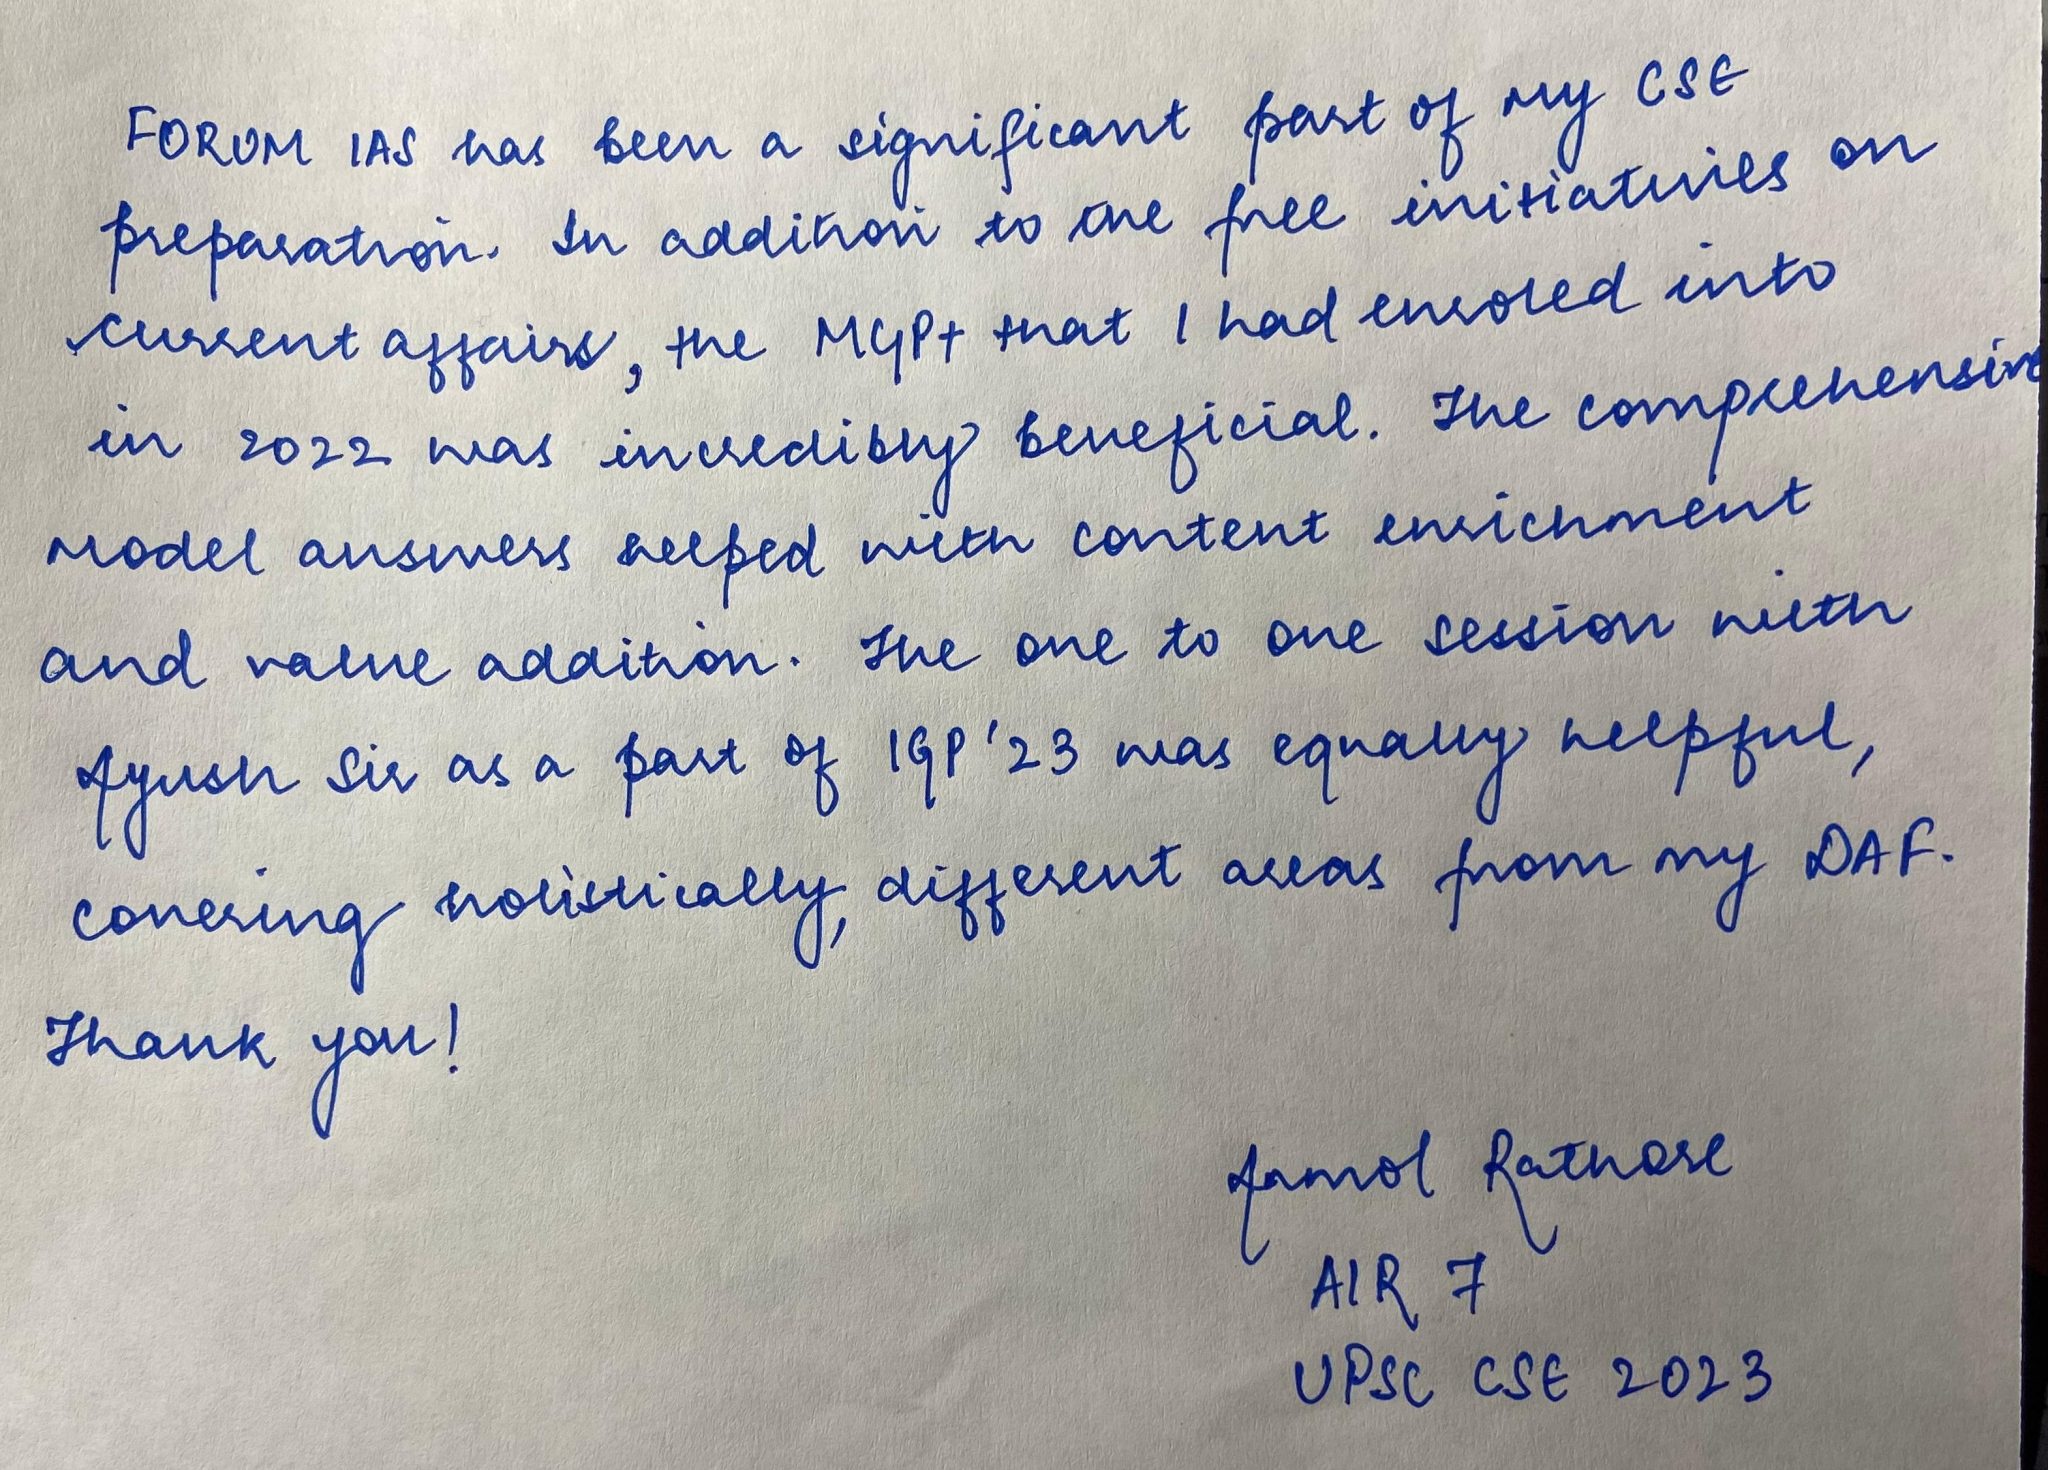 FORUM IAS has been a significant part of my CSE
preparation. In addition to the free initiatives on
current affairs, the MGP+ that I had enroled into
in 2022 was incredibly beneficial. The comprehensive
model answers helped with content enrichment
and value addition. The one to one session with
Ayush Sir as a part of IGP '23 was equally helpful,
covering holistically, different areas from my DAF.
Thank you!
Anmol Rathore
AIR 7
UPSC CSE 2023